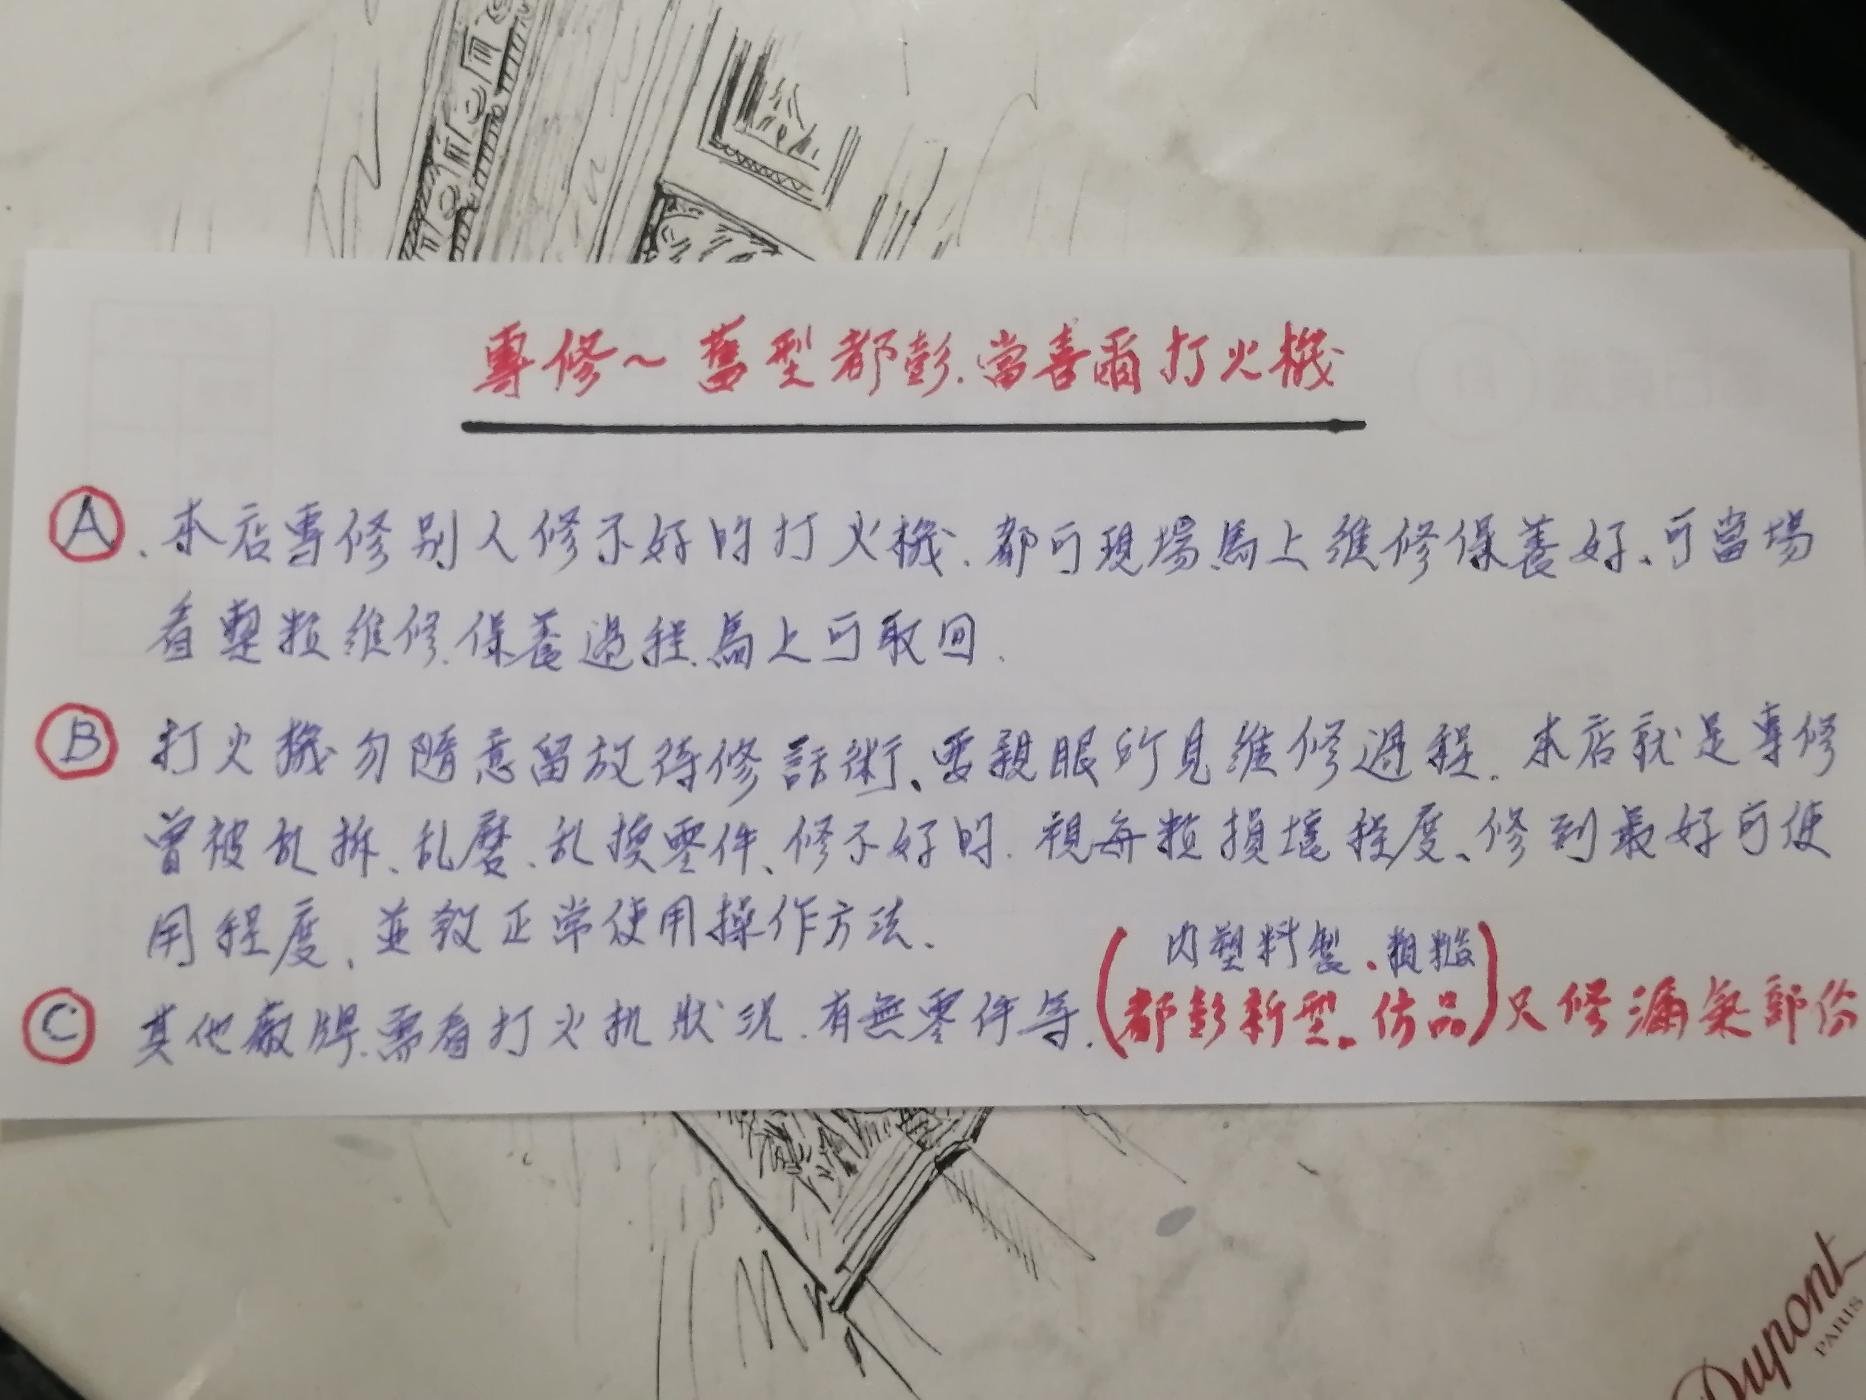 專修~舊型都彭.當喜爾打火機
A、本店專修別人修不好的打火機.都可現場馬上維修保養好、可當場
看整粒維修.保養過程.馬上可取回.
B 打火機勿隨意留放待修話術、要親眼所見維修過程.本店就是專修
曾被乱拆、乱磨、乱換零件、修不好的.視每粒損壞程度、修到最好可使
用程度、並教正常使用操作方法、
C 其他廠牌.需看打火机狀況.有無零件等.(都彭新型.仿品)只修漏氣部份
內塑料製.粗糙
Dupont
PARIS